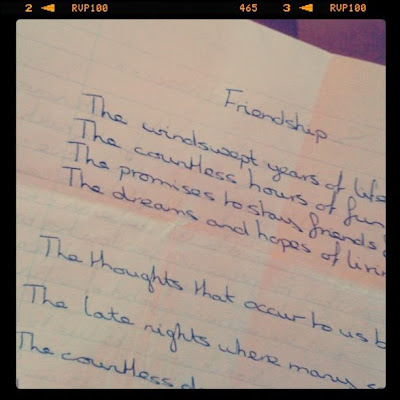 2 RVP100 465 3 RVP100
Friendship
The windswept years of life
The countless hours of fun
The promises to stay friends
The dreams and hopes of
The thoughts that occur to us
The late nights where many
The countless